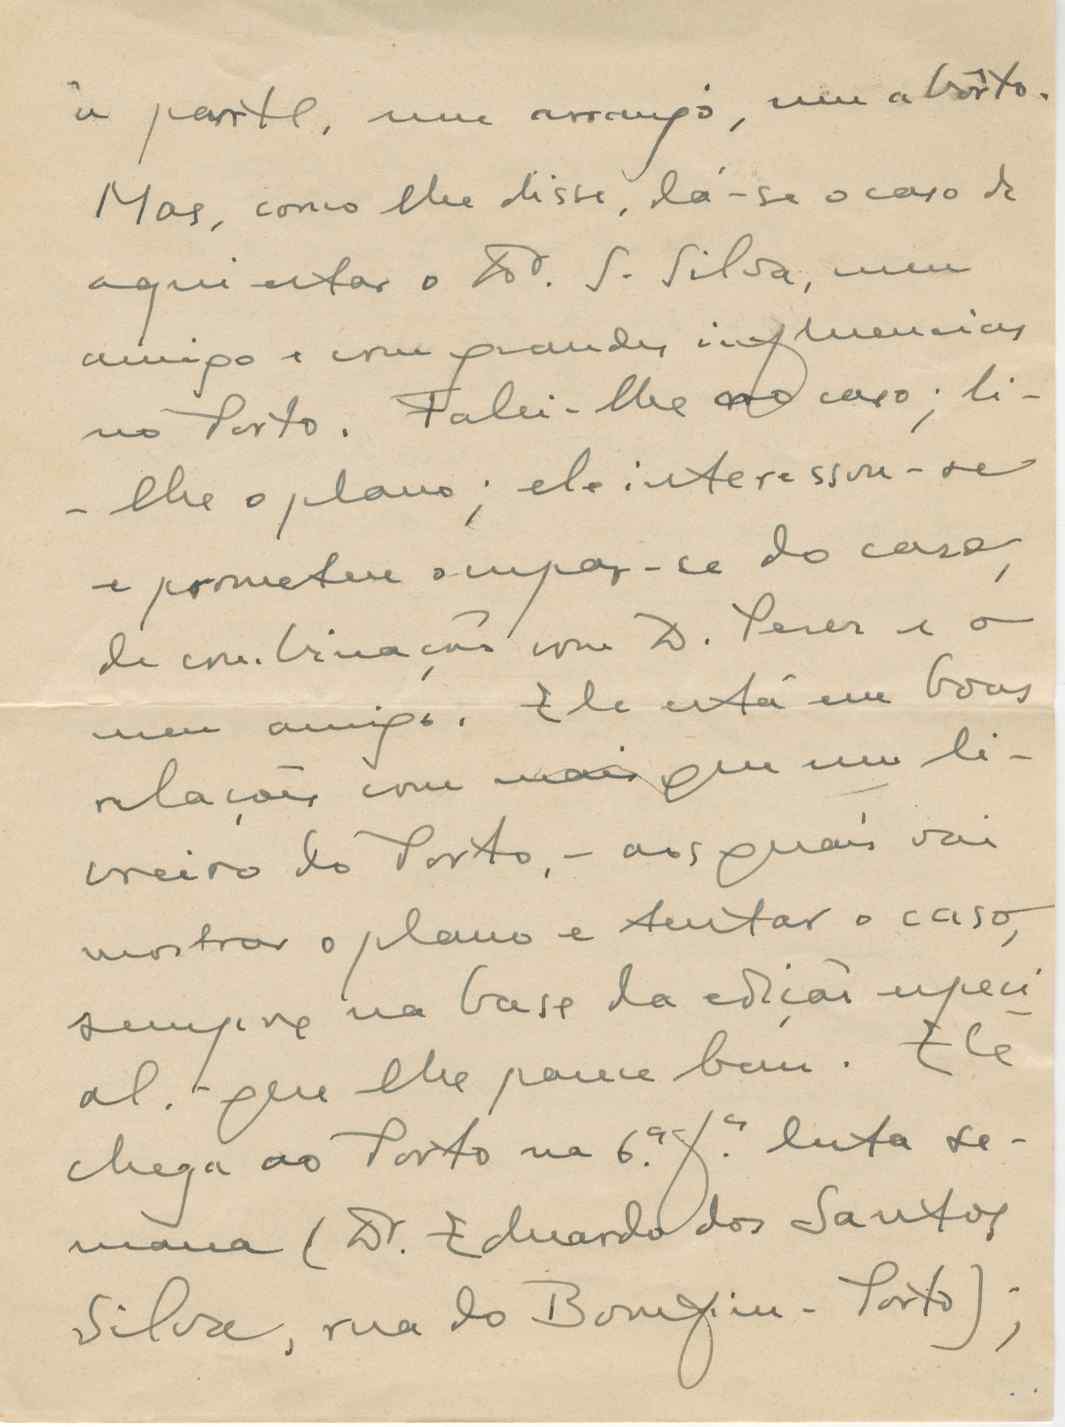 à parte, um arranjo, um abôrto.
Mas, como lhe disse, dá-se o caso de
aqui estar o Dr. S. Silva, meu
amigo e com grandes influencias
no Porto. Falei-lhe no caso; li-
-lhe o plano; ele interessou-se
e prometeu ocupar-se do caso,
de combinação com D. Perez e o
meu amigo. Ele está em boas
relações com mais que um li-
vreiro do Porto, - aos quais vai
mostrar o plano e tentar o caso,
sempre na base da edição especi
al. - que lhe parece bem. Ele
chega ao Porto na 6.ª f.ª desta se-
mana (Dr. Eduardo dos Santos
Silva, rua do Bomfim - Porto);